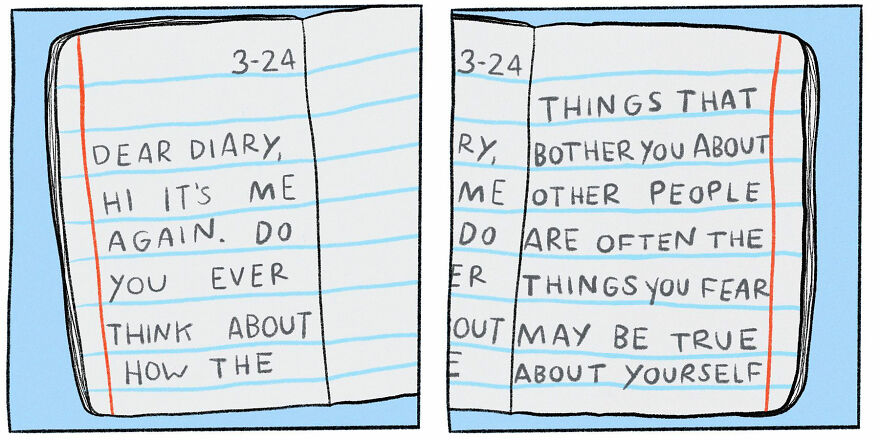 3-24
DEAR DIARY,
HI IT'S ME
AGAIN. DO
YOU EVER
THINK ABOUT
HOW THE
3-24
RY,
ME
DO
ER
OUT
E
THINGS THAT
BOTHER YOU ABOUT
OTHER PEOPLE
ARE OFTEN THE
THINGS YOU FEAR
MAY BE TRUE
ABOUT YOURSELF